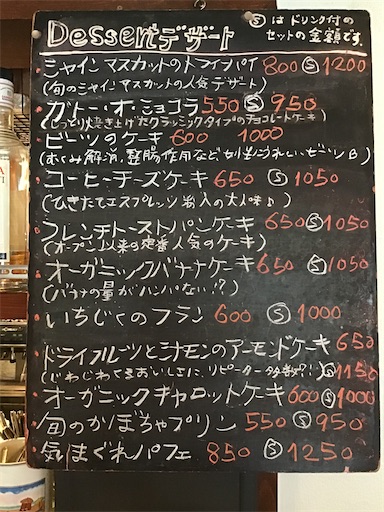 Dessert デザート
Ⓢは ドリンク付の
セットの金額です。
シャインマスカットのトライフルパイ 800 Ⓢ 1200
(旬のシャインマスカットの人気デザート)
ガトー・オ・ショコラ 550 Ⓢ 950
(しっとり焼き上げたクラッシックタイプのチョコレートケーキ)
ビーツのケーキ 600 1000
(むくみ解消、整腸作用など女性にうれしいビーツ)
コーヒーチーズケーキ 650 Ⓢ 1050
(ひきたてエスプレッソ 入の大人味♪)
フレンチトーストパンケーキ 650 Ⓢ 1050
(オープン以来の定番人気のケーキ)
オーガニックバナナケーキ 650 Ⓢ 1050
(バナナの量がハンパない!?)
いちじくのフラン 600 Ⓢ 1000
ドライフルーツとシナモンのアーモンドケーキ 650
(じわじわくるおいしさに、リピーター多数?!) Ⓢ 1150
オーガニックキャロットケーキ 600 Ⓢ 1000
旬のかぼちゃプリン 550 Ⓢ 950
気まぐれパフェ 850 Ⓢ 1250